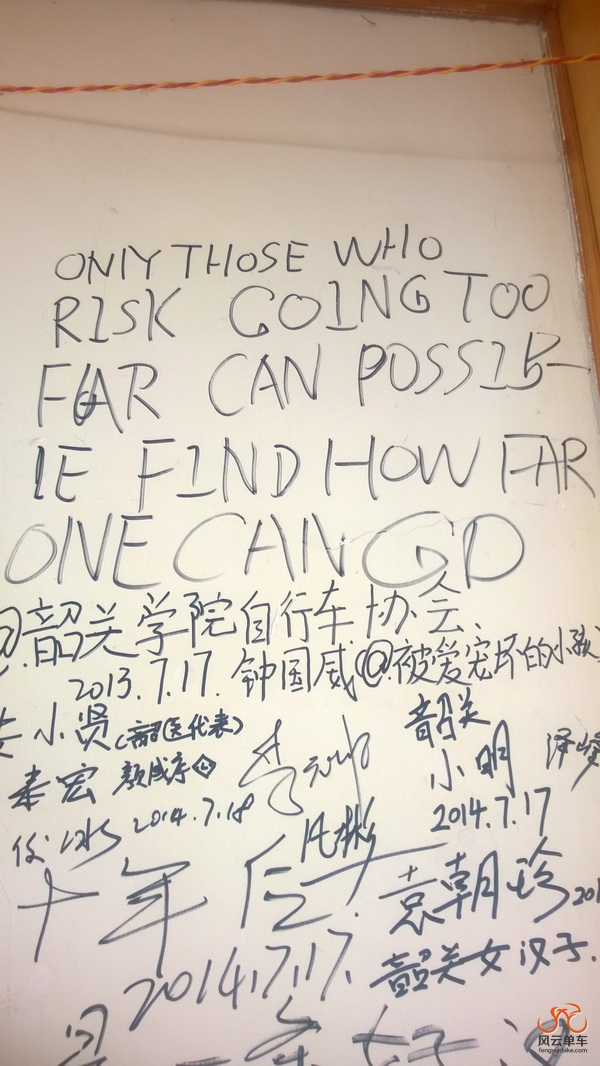 ONlY THOSE WHO
RISK GOING TOO
FAR CAN POSSIB-
lE FIND HOW FAR
ONE CAN GO
@韶关学院自行车协会、
2013.7.17. 钟国威@被爱宠坏的小孩
小贤(韶医代表)
韶关
小明
2014.7.17
秦宏
2014.7.18
十年后
袁朝珍
2014.7.17.
韶关女汉子.
一条好汉
风云单车
fengyunbike.com